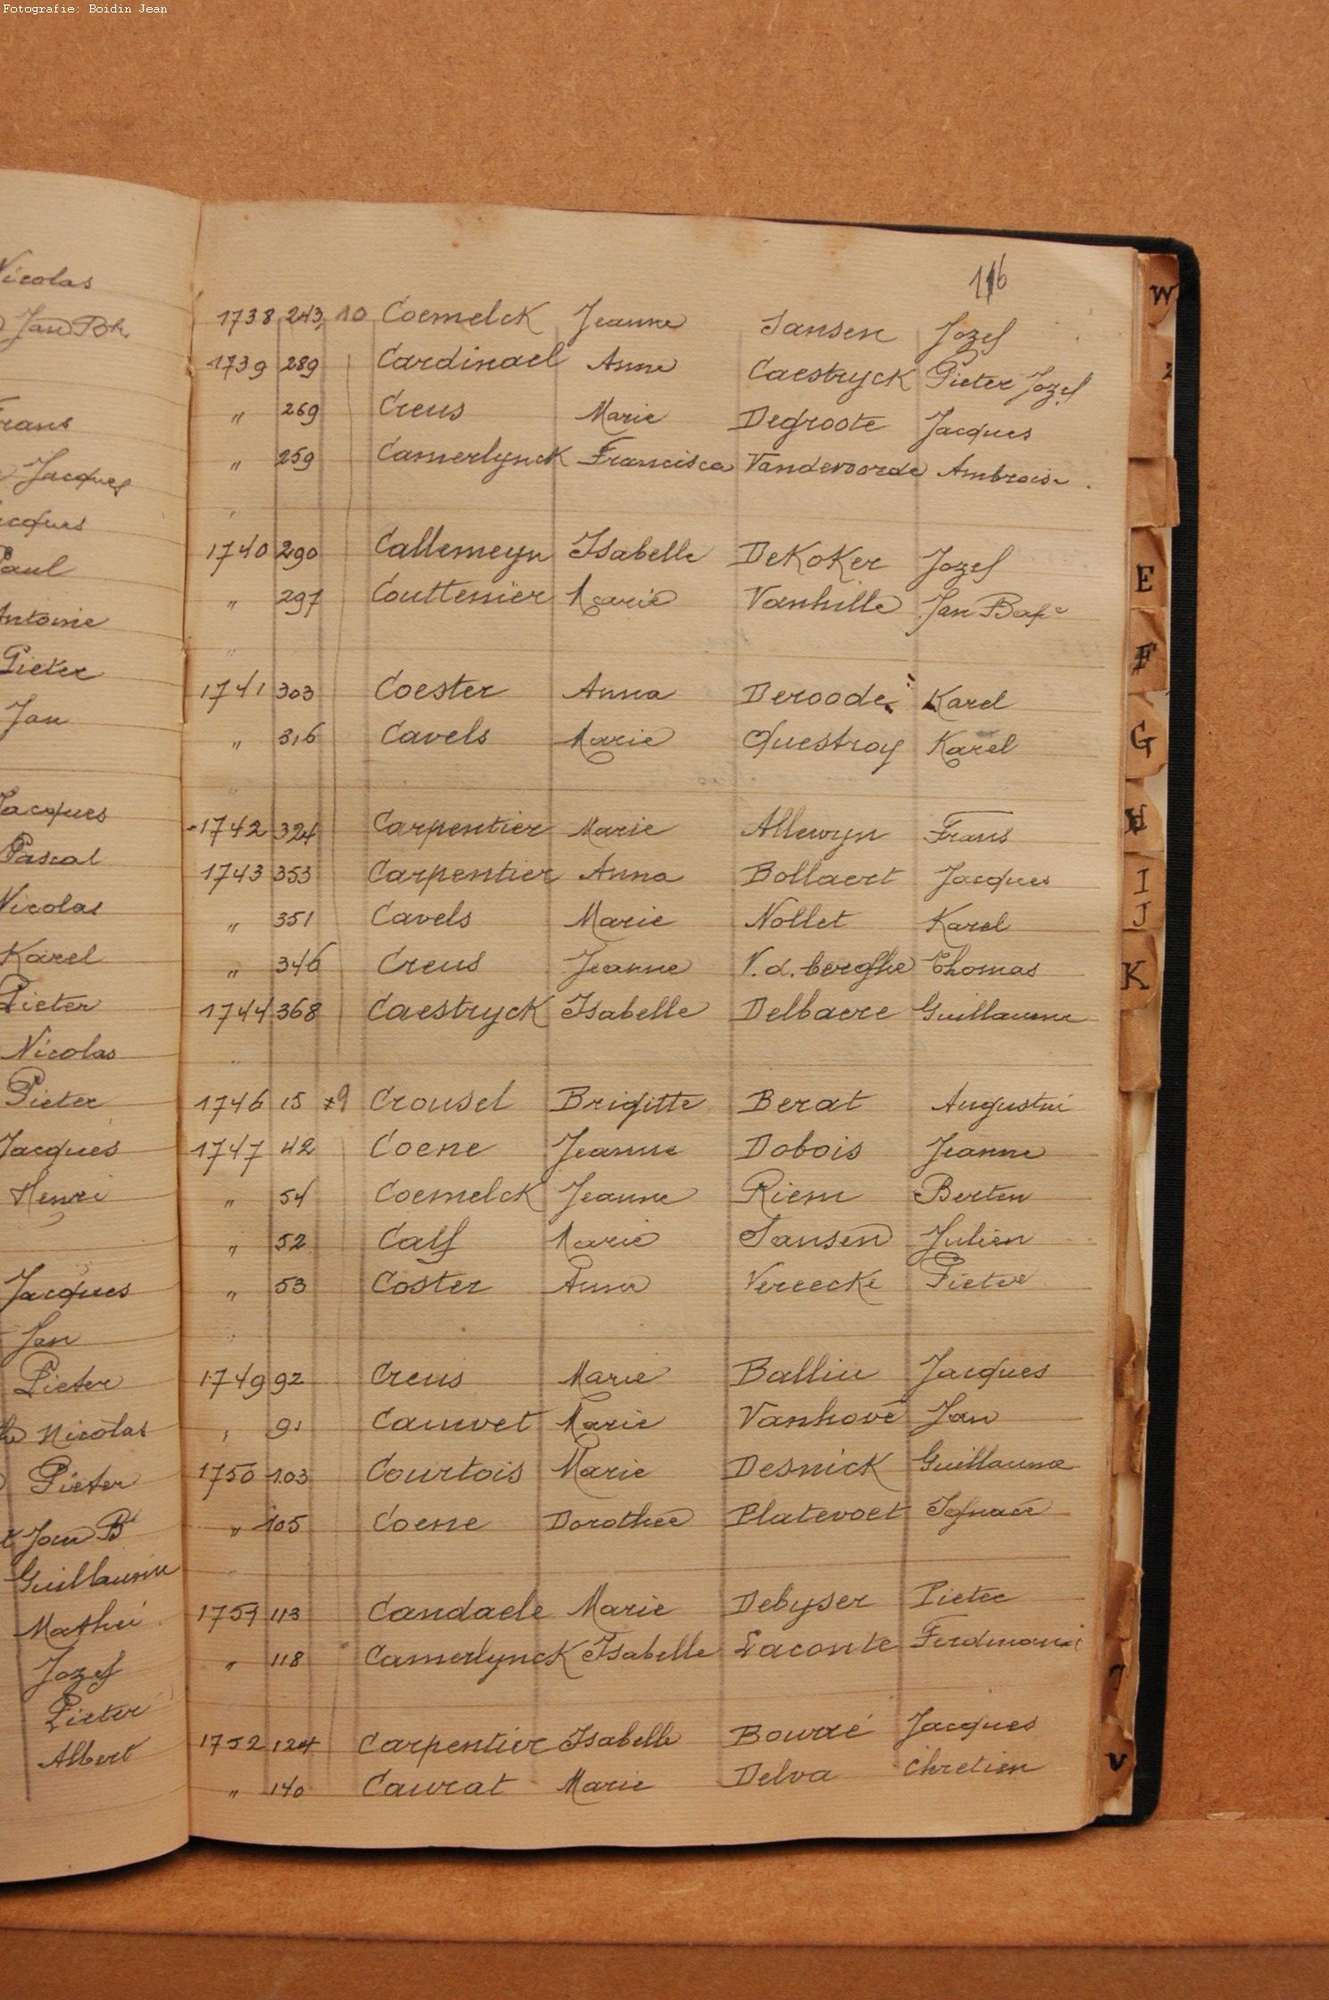 Fotografie: Boidin Jean
116
Nicolas
Jan Bte
Frans
Jacques
Jacques
Paul
Antoine
Pieter
Jan
Jacques
Pascal
Nicolas
Karel
Pieter
Nicolas
Pieter
Jacques
Henri
Jacques
Jan
Pieter
Nicolas
Pieter
Jan Bt
Guillaume
Mathei
Jozef
Pieter
Albert
1738 243 10 Coemelck Jeanne Jansen Jozef
1739 289 Cardinael Anne Caestryck Pieter Jozef
" 269 Creus Marie Degroote Jacques
" 259 Camerlynck Francisca Vandevoorde Ambroise
1740 290 Callemeyn Isabelle DeKoKer Jozef
" 297 Couttenier Marie Vanhille Jan Bapt
1741 303 Coester Anna Deroode Karel
" 316 Cavels Marie Questroy Karel
1742 324 Carpentier Marie Allewyn Frans
1743 353 Carpentier Anna Bollaert Jacques
" 351 Cavels Marie Nollet Karel
" 346 Creus Jeanne V.d. berghe Thomas
1744 368 Caestryck Isabelle Delbaere Guillaume
1746 15 9 Crousel Brigitte Berat Augustin
1747 42 Coene Jeanne Dobois Jeanne
" 54 Coemelck Jeanne Riem Berten
" 52 Calf Marie Jansen Julien
" 53 Coster Anna Vereecke Pieter
1749 92 Creus Marie Balliu Jacques
" 91 Cauwet Marie Vanhove Jan
1750 103 Courtois Marie Desnick Guillaume
" 105 Coene Dorothee Platevoet Ignace
1751 113 Candaele Marie Debyser Pieter
" 118 Camerlynck Isabelle Laconte Ferdinand
1752 124 Carpentier Isabelle Bourré Jacques
" 140 Caurat Marie Delva Chretien
W
Z
E
F
G
H
I
J
K
V